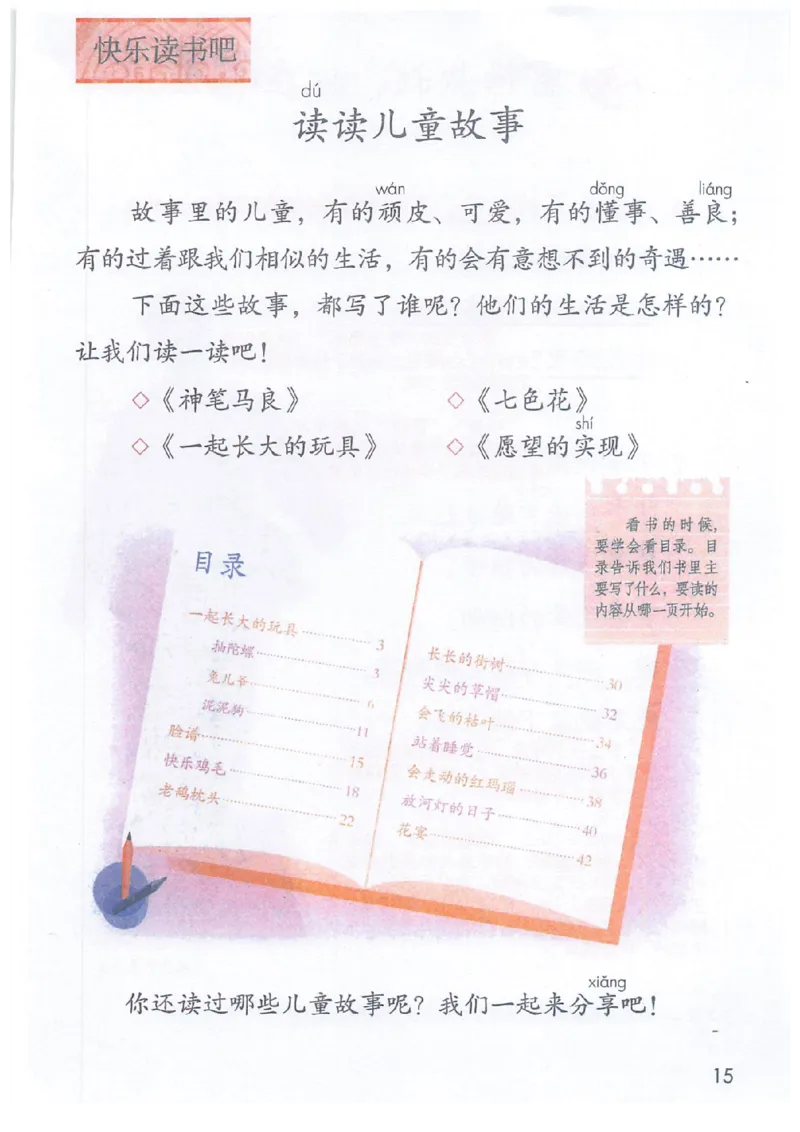 快乐读书吧
dú
读读儿童故事
wán dǒng liáng
故事里的儿童，有的顽皮、可爱，有的懂事、善良；
有的过着跟我们相似的生活，有的会有意想不到的奇遇……
下面这些故事，都写了谁呢？他们的生活是怎样的？
让我们读一读吧！
◇《神笔马良》 ◇《七色花》
shí
◇《一起长大的玩具》 ◇《愿望的实现》
看书的时候，
要学会看目录。目
录告诉我们书里主
要写了什么，要读的
内容从哪一页开始。
目录
一起长大的玩具……………3
抽陀螺……………3
兔儿爷……………6
泥泥狗……………11
脸谱……………15
快乐鸡毛……………18
老鸹枕头……………22
长长的街树……………30
尖尖的草帽……………32
会飞的枯叶……………34
站着睡觉……………36
会走动的红玛瑙……………38
放河灯的日子……………40
花宴……………42
xiǎng
你还读过哪些儿童故事呢？我们一起来分享吧！
15